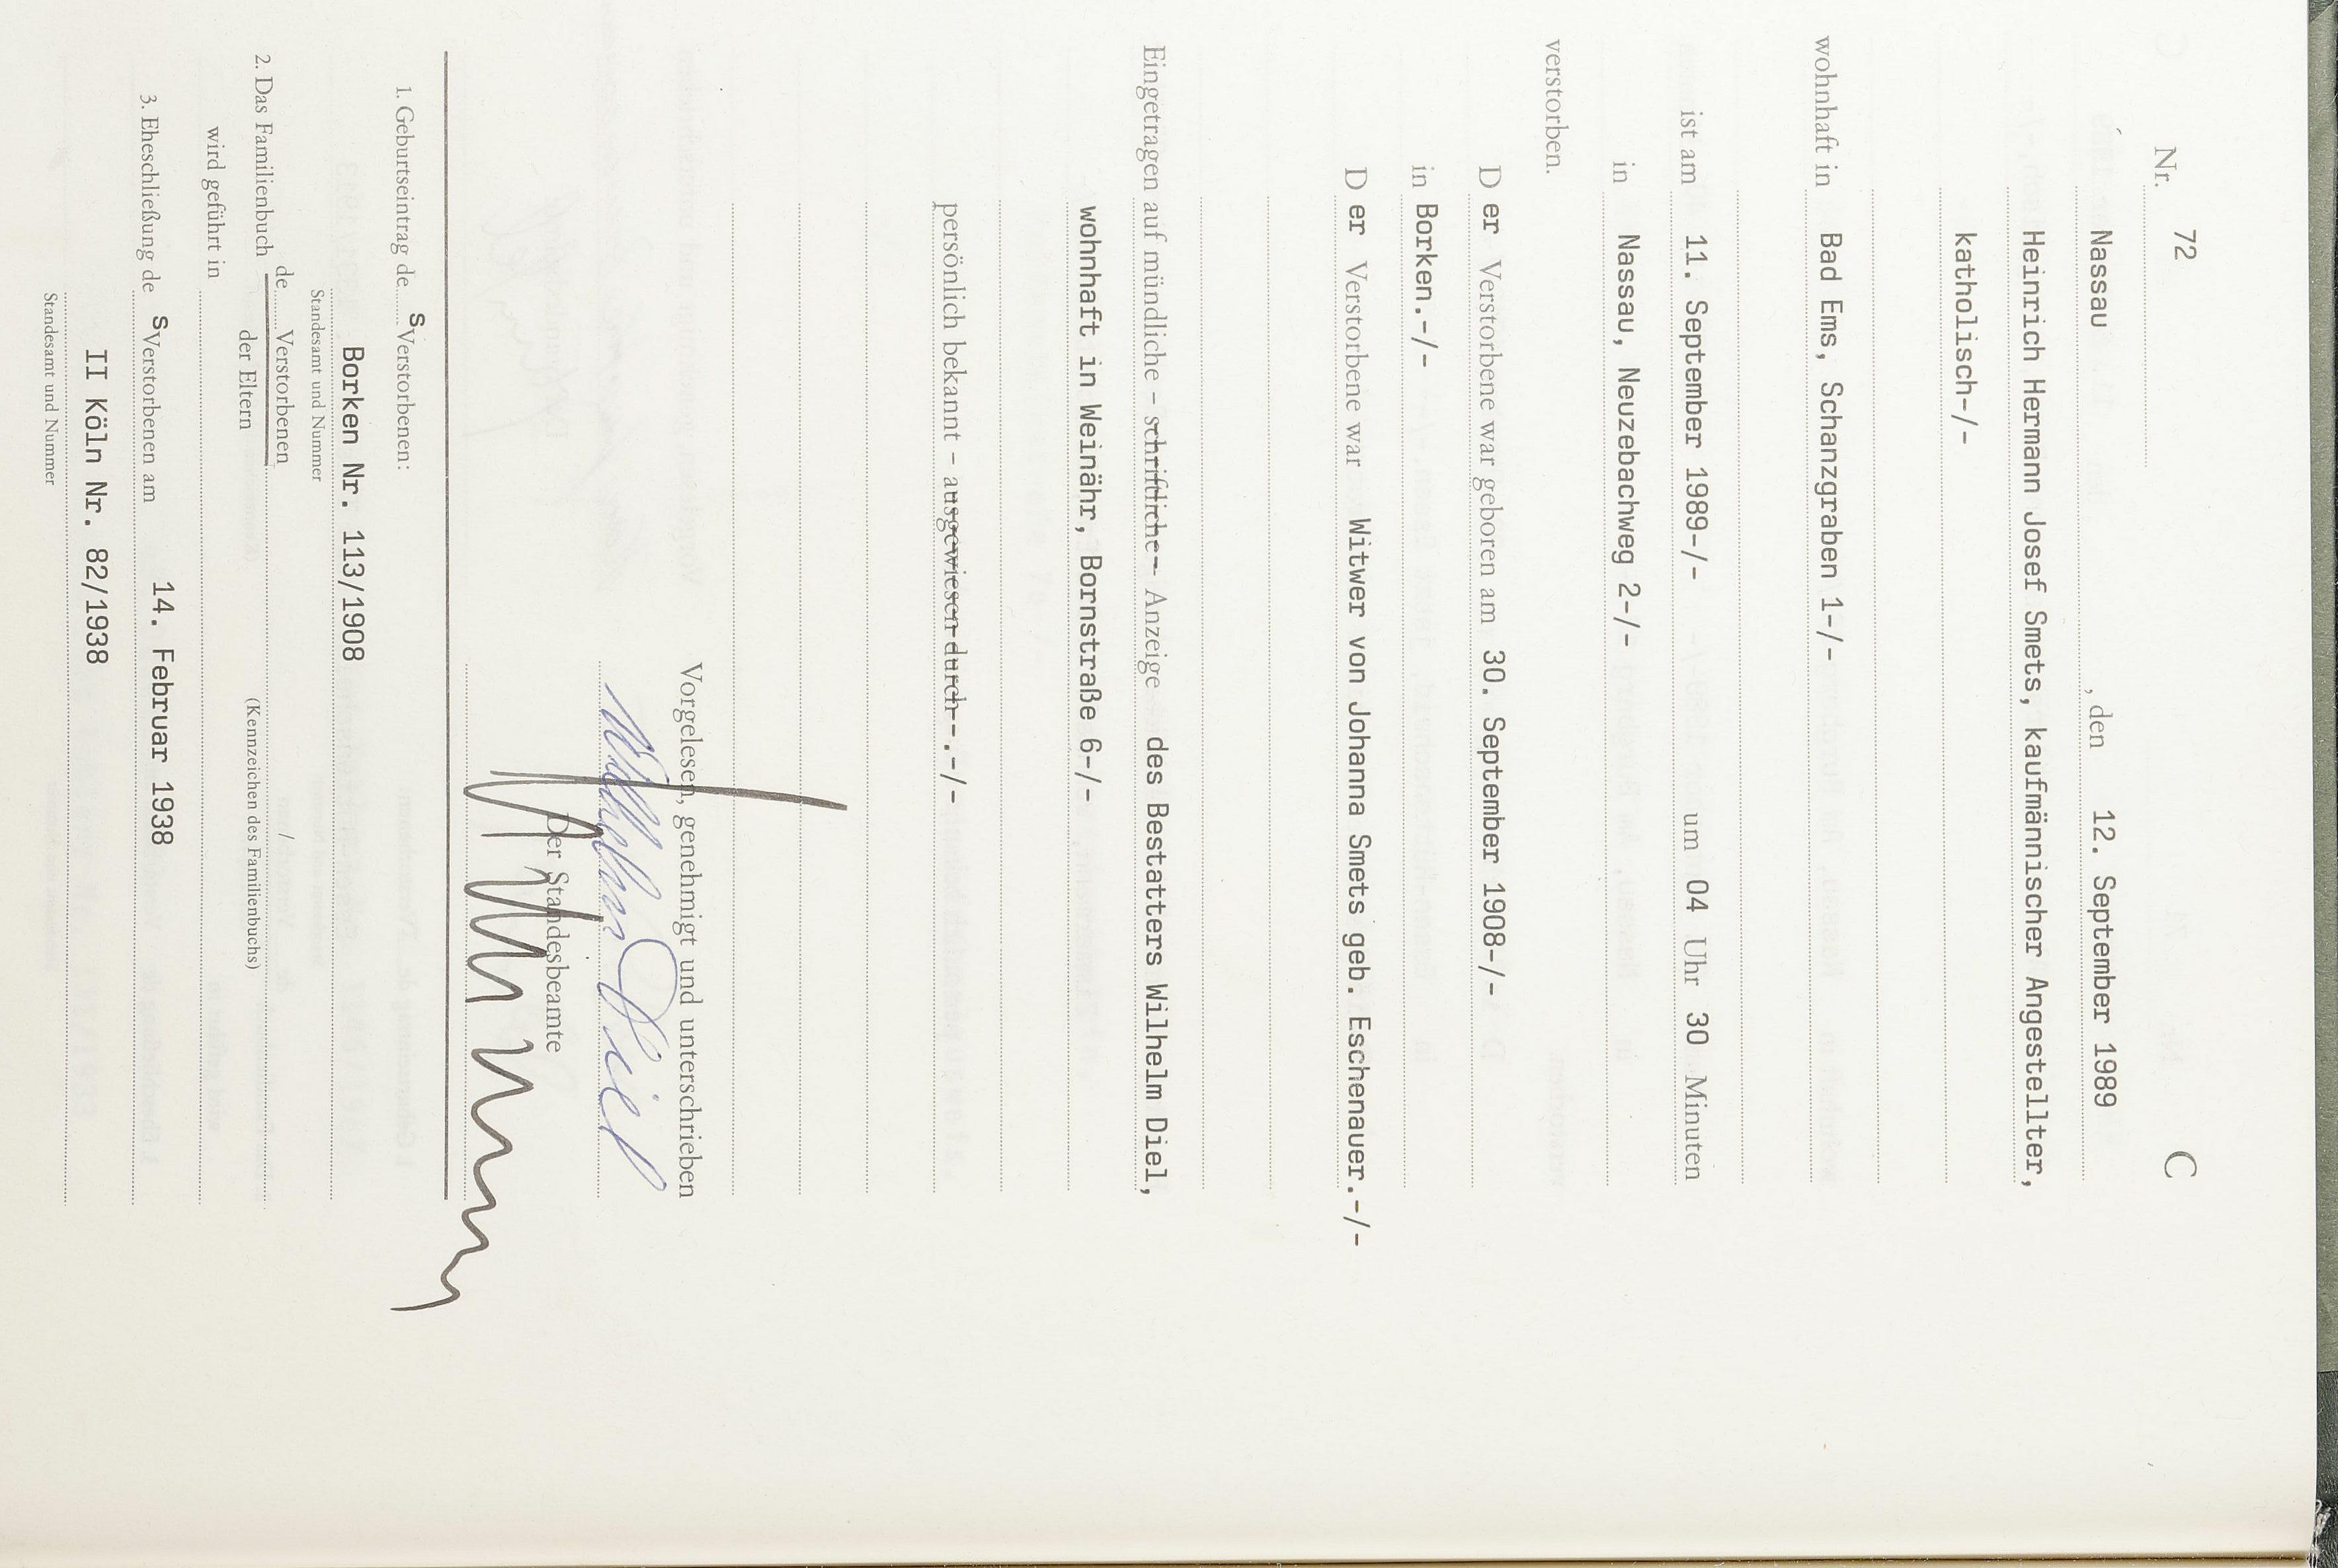 Nr. 72 C
Nassau , den 12. September 1989
Heinrich Hermann Josef Smets, kaufmännischer Angestellter,
katholisch-/-
wohnhaft in Bad Ems, Schanzgraben 1-/-
ist am 11. September 1989-/- um 04 Uhr 30 Minuten
in Nassau, Neuzebachweg 2-/-
verstorben.
D er Verstorbene war geboren am 30. September 1908-/-
in Borken.-/-
D er Verstorbene war Witwer von Johanna Smets geb. Eschenauer.-/-
Eingetragen auf mündliche – schriftliche – Anzeige des Bestatters Wilhelm Diel,
wohnhaft in Weinähr, Bornstraße 6-/-
persönlich bekannt – ausgewiesen durch--.-/-
Vorgelesen, genehmigt und unterschrieben
Wilhelm Diel
Der Standesbeamte
1. Geburtseintrag de s Verstorbenen:
Borken Nr. 113/1908
Standesamt und Nummer
2. Das Familienbuch de Verstorbenen
der Eltern (Kennzeichen des Familienbuchs)
wird geführt in
3. Eheschließung de s Verstorbenen am 14. Februar 1938
II Köln Nr. 82/1938
Standesamt und Nummer